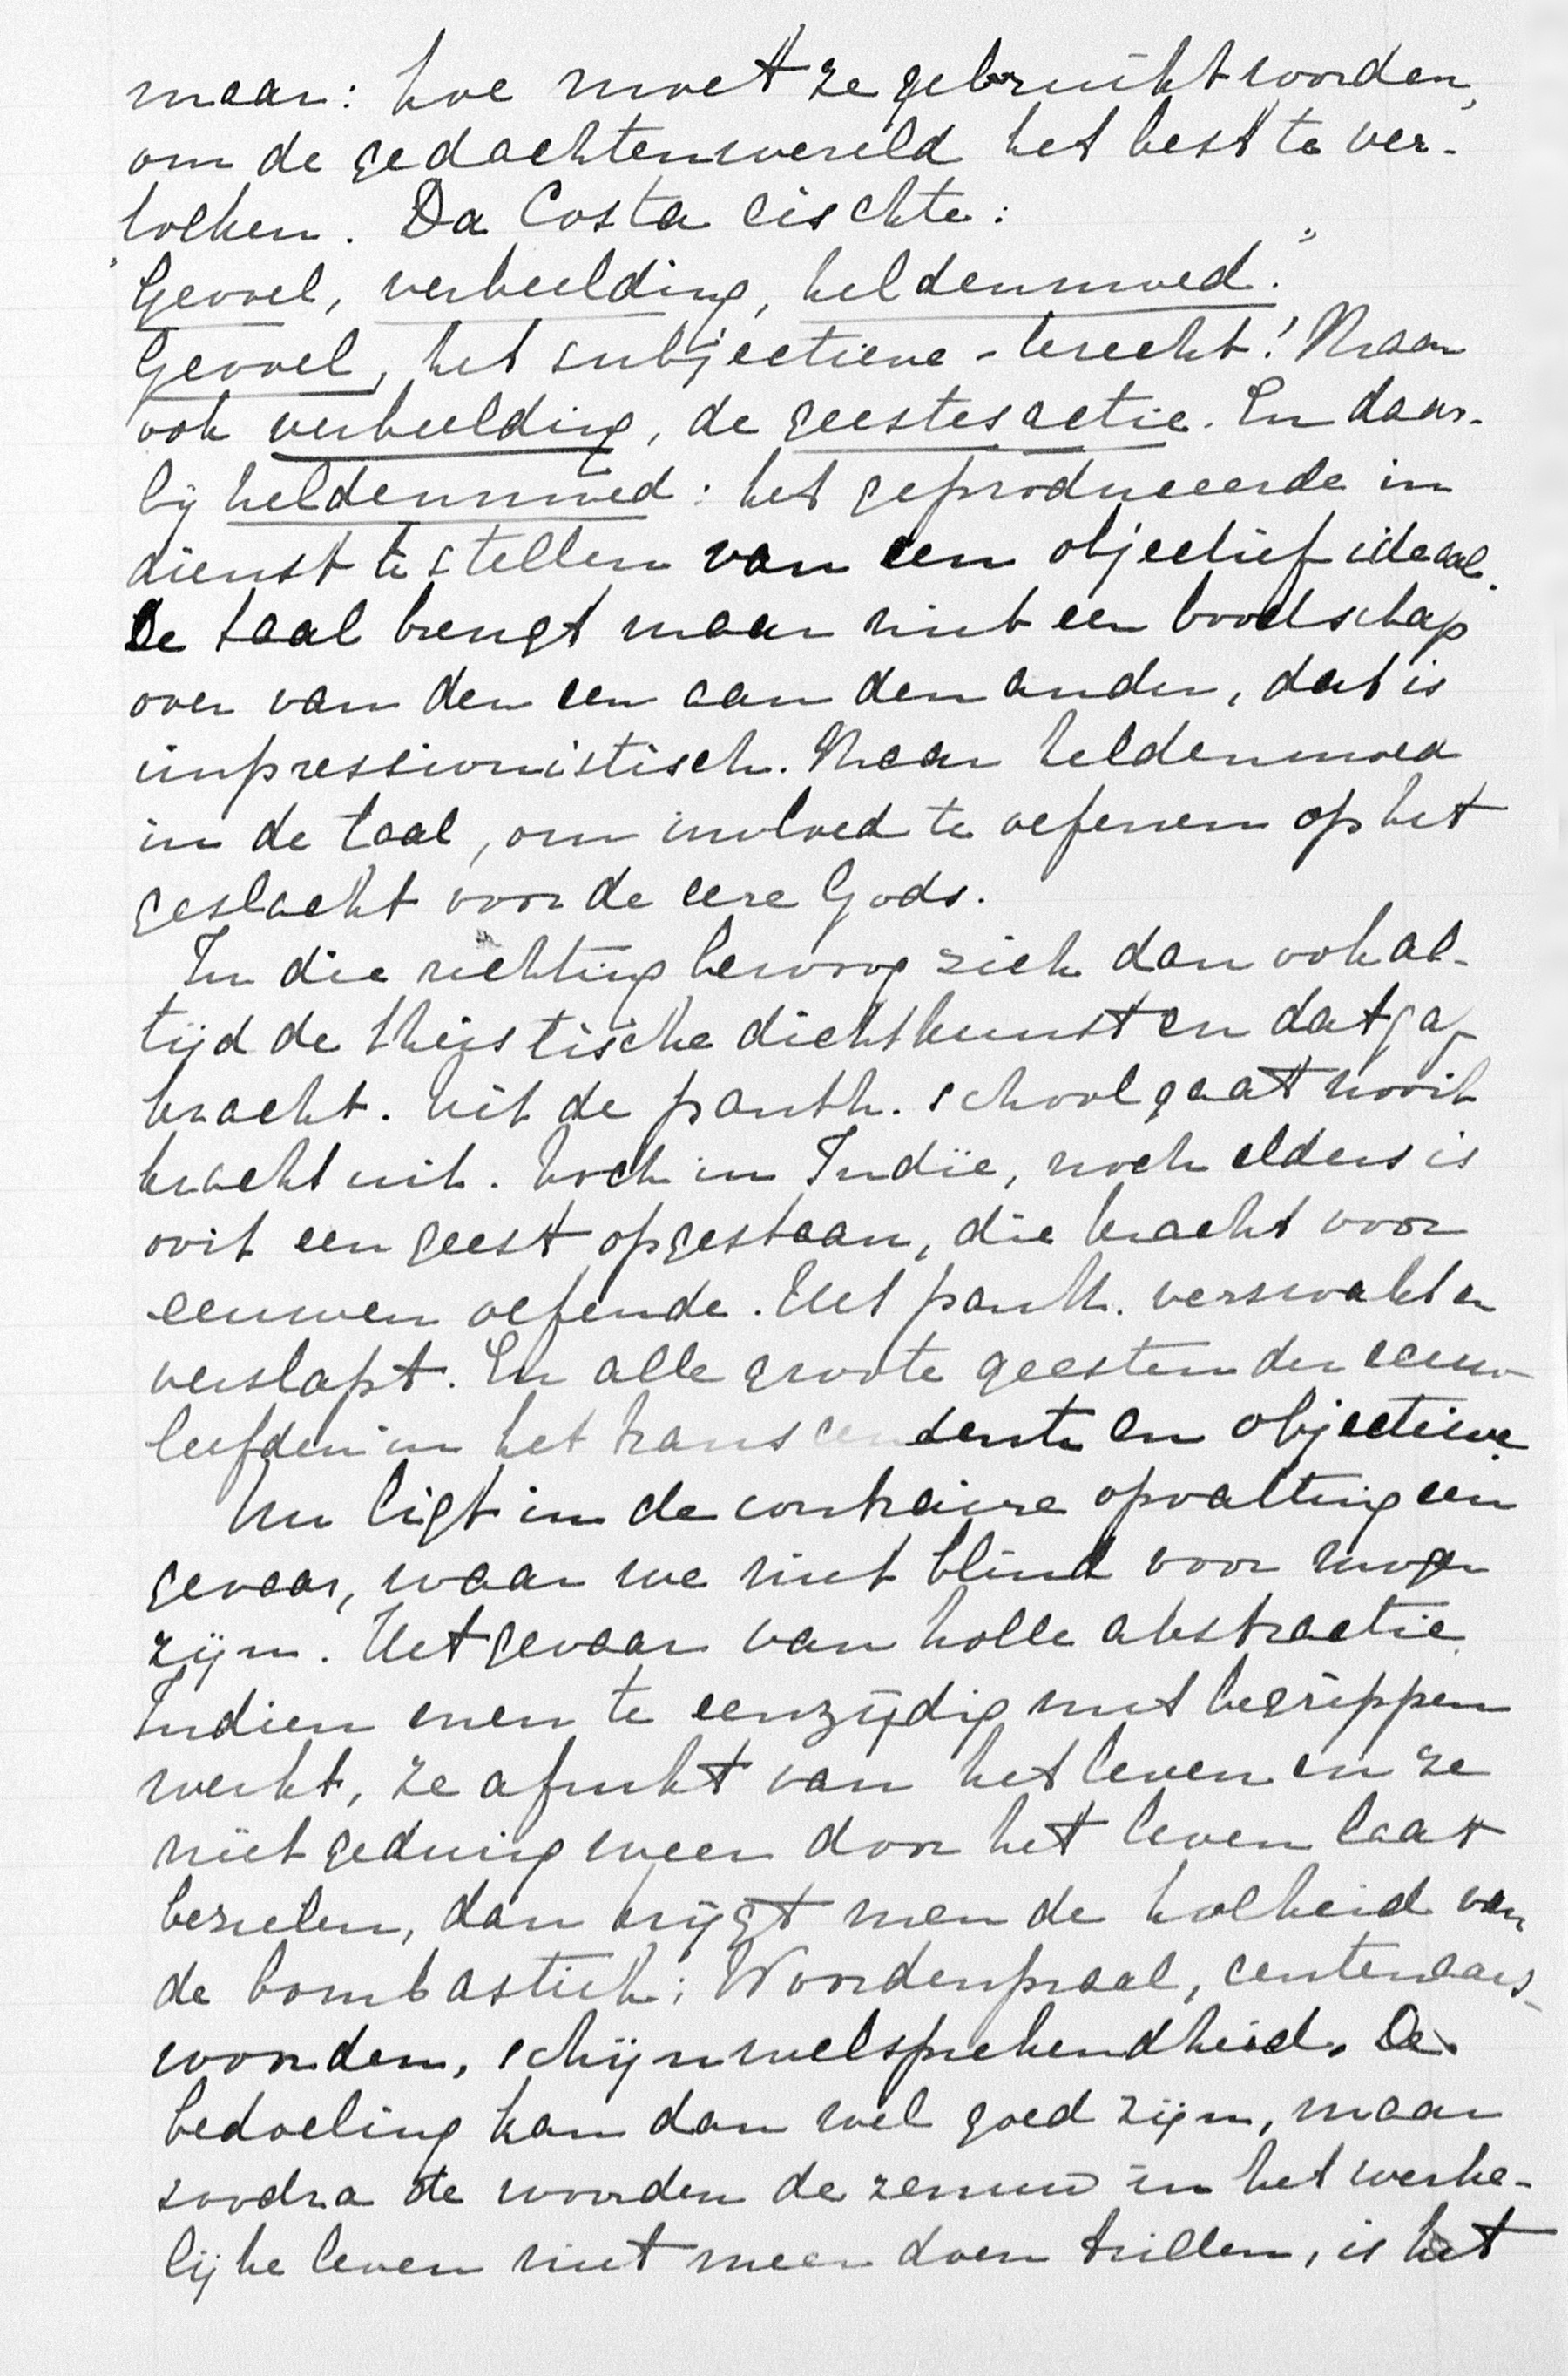 maar: hoe moet ze gebruikt worden,
om de gedachtenwereld het best te ver-
tolken. Da Costa eischte:
"Gevoel, verbeelding, heldenmoed."
Gevoel, het subjectieve - terecht! Maar
ook verbeelding, de geestesactie. En daar-
bij heldenmoed: het geproduceerde in
dienst te stellen van een objectief ideaal.
De taal brengt maar niet een boodschap
over van den een aan den ander, dat is
impressionistisch. Maar heldenmoed
in de taal, om invloed te oefenen op het
geslacht voor de eere Gods.
In die richting bewoog zich dan ook al-
tijd de theistische dichtkunst en dat gaf
kracht. Uit de panth. school gaat nooit
kracht uit. Noch in Indië, noch elders is
ooit een geest opgestaan, die kracht voor
eeuwen oefende. Het panth. verzwakt en
verslapt. En alle groote geesten der eeuw
leefden in het transcendente en objectieve.
Nu ligt in de contraire opvatting een
gevaar, waar we niet blind voor mogen
zijn. Het gevaar van holle abstractie.
Indien men te eenzijdig met begrippen
werkt, ze afrukt van het leven en ze
niet gedurig weer door het leven laat
bezielen, dan krijgt men de holheid van
de bombastiek: Woordenpraal, centenaars-
woorden, schijnwelsprekendheid. De
bedoeling kan dan wel goed zijn, maar
zoodra de woorden de zenuw in het werke-
lijke leven niet meer doen trillen, is het